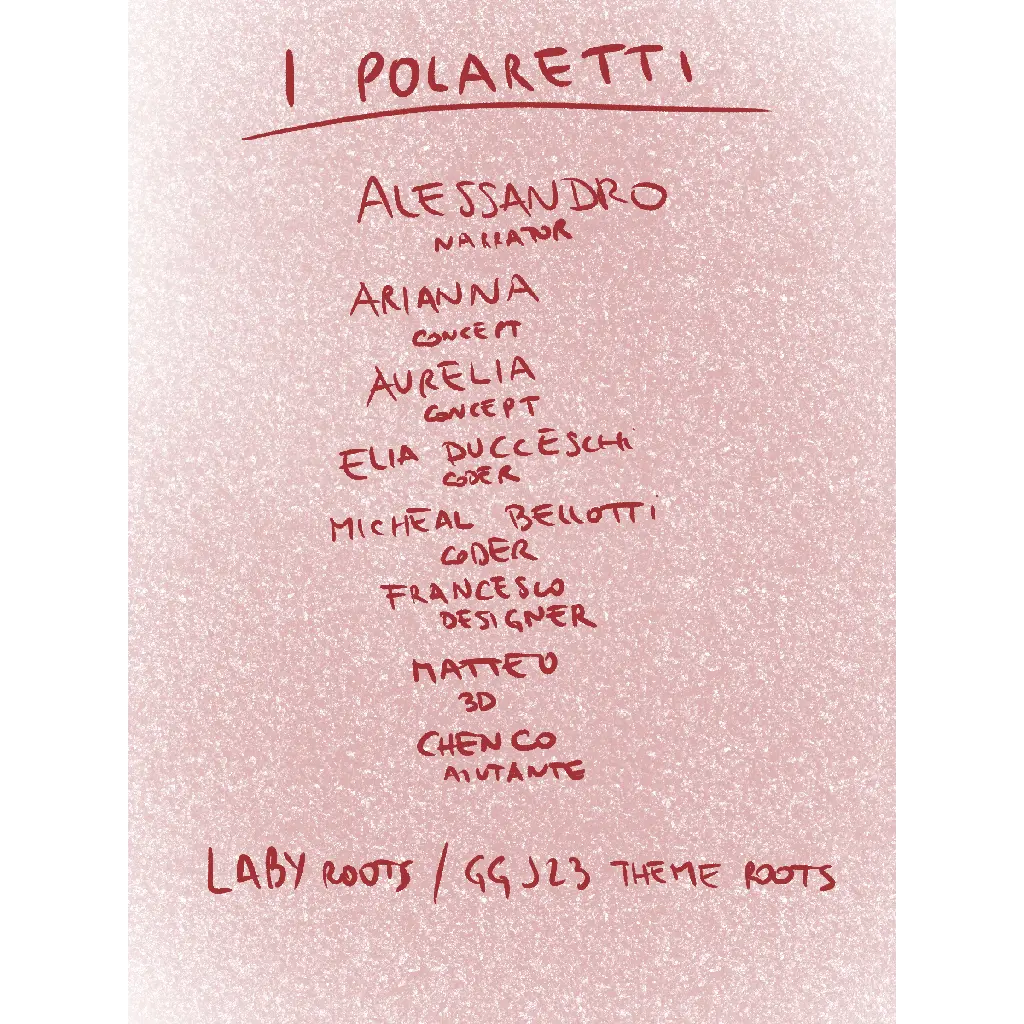 I POLARETTI
ALESSANDRO
NARRATOR
ARIANNA
CONCEPT
AURELIA
CONCEPT
ELIA DUCCESCHi
CODER
MICHEAL BELLOTTi
CODER
FRANCESCO
DESIGNER
MATTEO
3D
CHENCO
AIUTANTE
LABYROOTS / GGJ23 THEME ROOTS